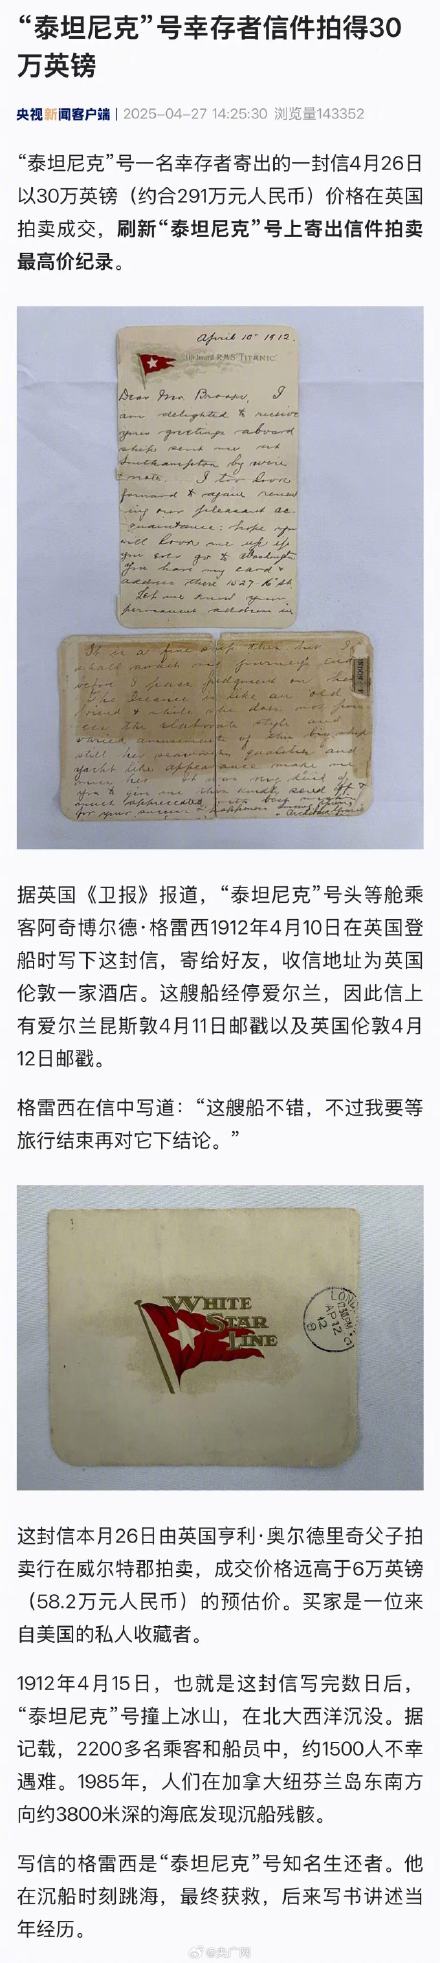 “泰坦尼克”号幸存者信件拍得30
万英镑
央视新闻客户端 | 2025-04-27 14:25:30 浏览量143352
“泰坦尼克”号一名幸存者寄出的一封信4月26日
以30万英镑（约合291万元人民币）价格在英国
拍卖成交，刷新“泰坦尼克”号上寄出信件拍卖
最高价纪录。
April 10th 1912.
On board R.M.S. "TITANIC"
Dear Mr. I
am delighted to receive
your greetings aboard
ship sent me at
Southampton by wire
& note. I too look
forward to again renew
ing our pleasant ac
quaintance: hope you
will look me up if
you ever go to Washington
You have my card &
address there 1527 16 St
Let me know your
permanent address in
It is a fine ship but I
shall await my journeys end
before I pass judgment on her
The Oceanic is like an old
friend & while she does not
the elaborate style and
varied amusements of this big ship
still her qualities and
yacht like appearance make me
her. It was very kind of
you to give me this kindly send off &
with best
for your success & happiness
据英国《卫报》报道，“泰坦尼克”号头等舱乘
客阿奇博尔德·格雷西1912年4月10日在英国登
船时写下这封信，寄给好友，收信地址为英国
伦敦一家酒店。这艘船经停爱尔兰，因此信上
有爱尔兰昆斯敦4月11日邮戳以及英国伦敦4月
12日邮戳。
格雷西在信中写道：“这艘船不错，不过我要等
旅行结束再对它下结论。”
WHITE
STAR
LINE
AP 12
12
这封信本月26日由英国亨利·奥尔德里奇父子拍
卖行在威尔特郡拍卖，成交价格远高于6万英镑
（58.2万元人民币）的预估价。买家是一位来
自美国的私人收藏者。
1912年4月15日，也就是这封信写完数日后，
“泰坦尼克”号撞上冰山，在北大西洋沉没。据
记载，2200多名乘客和船员中，约1500人不幸
遇难。1985年，人们在加拿大纽芬兰岛东南方
向约3800米深的海底发现沉船残骸。
写信的格雷西是“泰坦尼克”号知名生还者。他
在沉船时刻跳海，最终获救，后来写书讲述当
年经历。
@央广网